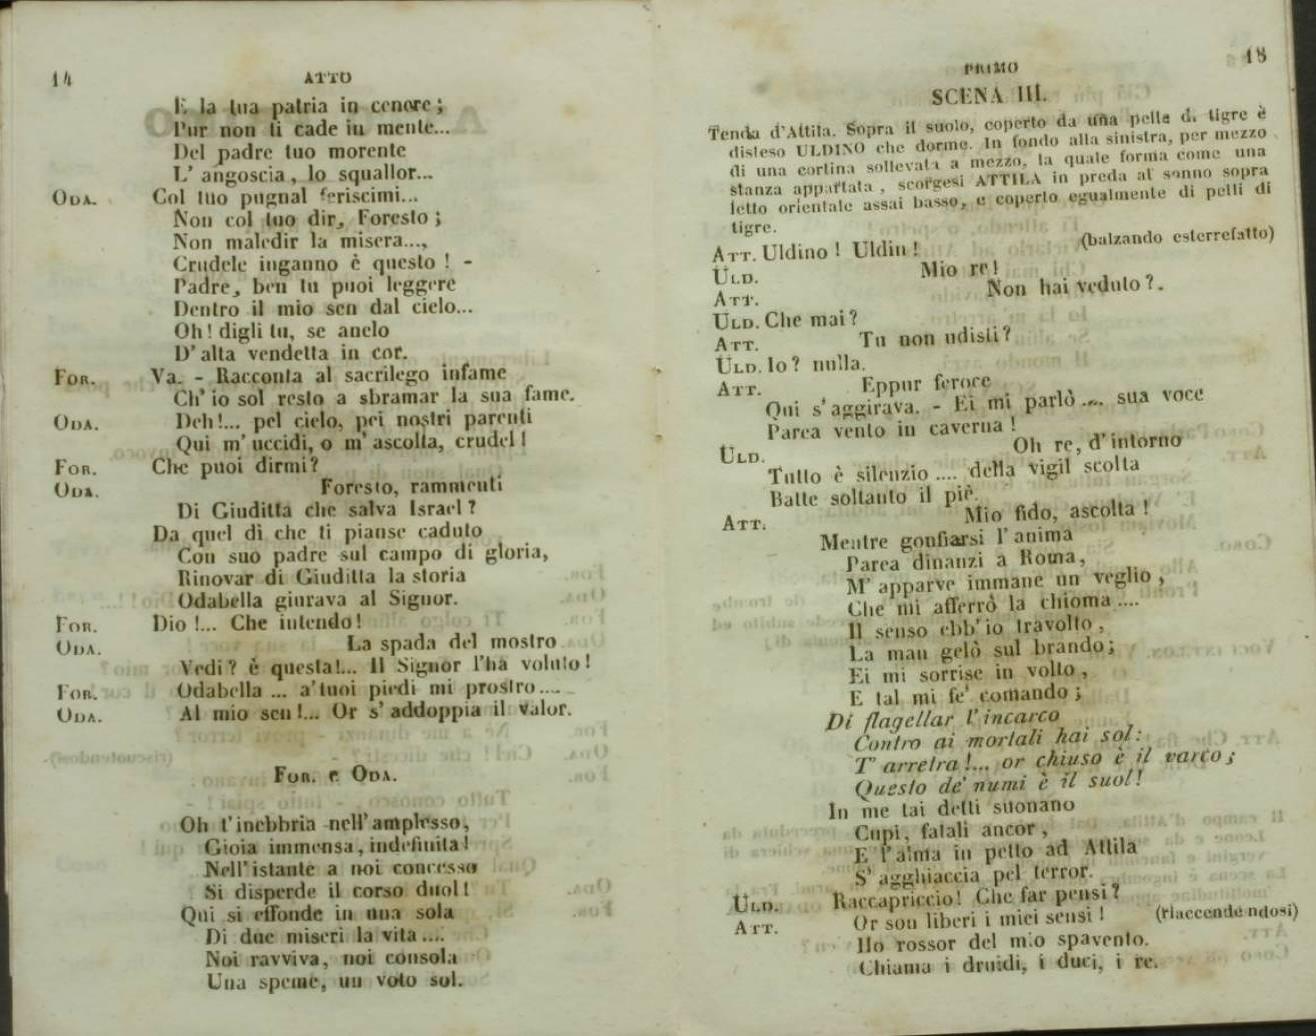 14
ATTO
E la tua patria in cenere;
Pur non ti cade in mente...
Del padre tuo morente
L' angoscia, lo squallor...
ODA. Col tuo pugnal feriscimi...
Non col tuo dir, Foresto;
Non maledir la misera...,
Crudele inganno è questo! -
Padre, ben tu puoi leggere
Dentro il mio sen dal cielo...
Oh! digli tu, se anelo
D' alta vendetta in cor.
FOR. Va. - Racconta al sacrilego infame
Ch' io sol resto a sbramar la sua fame.
ODA. Deh!... pel cielo, pei nostri parenti
Qui m' uccidi, o m' ascolta, crudel!
FOR. Che puoi dirmi?
ODA. Foresto, rammenti
Di Giuditta che salva Israel?
Da quel dì che ti pianse caduto
Con suo padre sul campo di gloria,
Rinovar di Giuditta la storia
Odabella giurava al Signor.
FOR. Dio!... Che intendo!
ODA. La spada del mostro
Vedi? è questa!... Il Signor l'ha voluto!
FOR. Odabella ... a' tuoi piedi mi prostro....
ODA. Al mio sen!... Or s' addoppia il valor.
FOR. e ODA.
Oh t'inebbria nell' amplesso,
Gioia immensa, indefinita!
Nell' istante a noi concesso
Si disperde il corso duol!
Qui si effonde in una sola
Di due miseri la vita....
Noi ravviva, noi consola
Una speme, un voto sol.
PRIMO
15
SCENA III.
Tenda d'Attila. Sopra il suolo, coperto da una pelle di tigre è
disteso ULDINO che dorme. In fondo alla sinistra, per mezzo
di una cortina sollevata a mezzo, la quale forma come una
stanza appartata, scorgesi ATTILA in preda al sonno sopra
letto orientale assai basso, e coperto egualmente di pelli di
tigre.
ATT. Uldino! Uldin! (balzando esterrefatto)
ULD. Mio re!
ATT. Non hai veduto?.
ULD. Che mai?
ATT. Tu non udisti?
ULD. Io? nulla.
ATT. Eppur feroce
Qui s' aggirava. - Ei mi parlò .... sua voce
Parea vento in caverna!
ULD. Oh re, d' intorno
Tutto è silenzio .... della vigil scolta
Batte soltanto il piè.
ATT. Mio fido, ascolta!
Mentre gonfiarsi l' anima
Parea dinanzi a Roma,
M' apparve immane un veglio,
Che mi afferrò la chioma....
Il senso ebb' io travolto,
La man gelò sul brando;
Ei mi sorrise in volto,
E tal mi fe' comando;
Di flagellar l' incarco
Contro ai mortali hai sol:
T' arretra!... or chiuso è il varco;
Questo de' numi è il suol!
In me tai detti suonano
Cupi, fatali ancor,
E l' alma in petto ad Attila
S' agghiaccia pel terror.
ULD. Raccapriccio! Che far pensi?
ATT. Or son liberi i miei sensi! (riaccendendosi)
Ho rossor del mio spavento.
Chiama i druidi, i duci, i re.